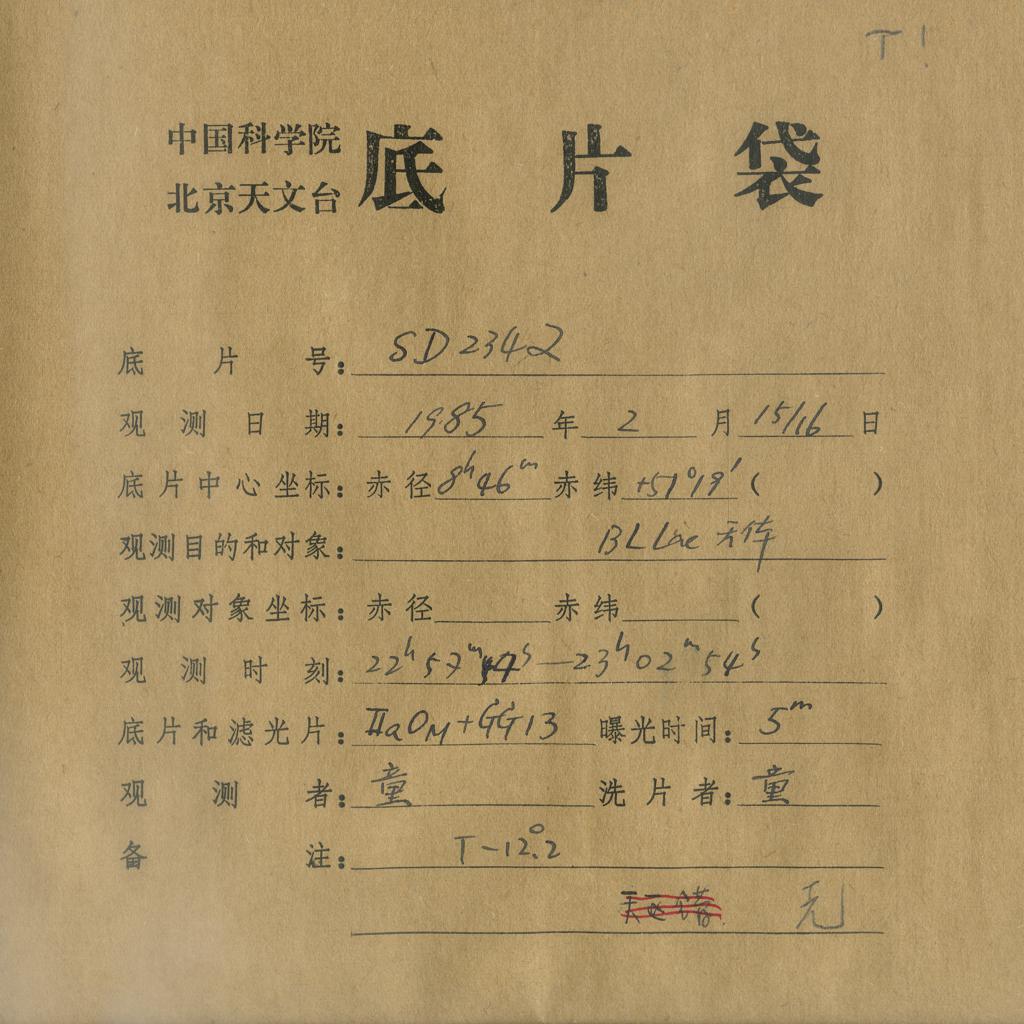 T!
中国科学院
北京天文台
底片袋
底片号：SD2342
观测日期：1985年2月15/16日
底片中心坐标：赤径8h46m赤纬+51°19′（ ）
观测目的和对象：BL Lac 天体
观测对象坐标：赤径 赤纬 （ ）
观测时刻：22h57m54s—23h02m54s
底片和滤光片：IIaOM+GG13 曝光时间：5m
观测者：童 洗片者：童
备注：T-12°.2